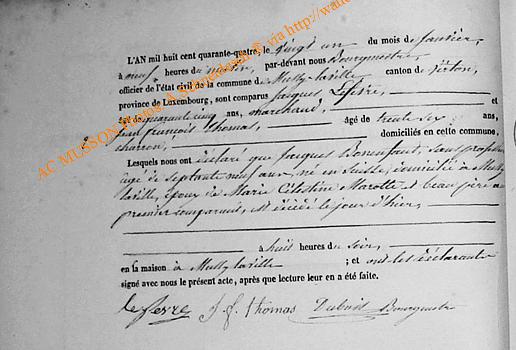 L'AN mil huit cent quarante-quatre, le vingt un du mois de janvier,
à neuf heures du matin, par-devant nous Bourgmestre
officier de l'état civil de la commune de Mussy-la-ville canton de Virton,
province de Luxembourg, sont comparus Jacques Lefevre,
âgé de quarante cinq ans, marchand, et
Jean françois thomas, âgé de trente six ans,
charron, domiciliés en cette commune,
Lesquels nous ont déclaré que Jacques Bonenfant, sans profession
âgé de septante neuf ans, né en domicilié à Mussy
laville, époux de Marie Célestine Marotte et beau père au
premier comparant, est décédé le jour d'hier,
à huit heures du soir,
en sa maison à Mussy-laville ; et ont les déclarants
signé avec nous le présent acte, après que lecture leur en a été faite.
lefevre J. f. thomas Dubois Bourgmestre
AC MUSSON Photos: A. Schneider via http://